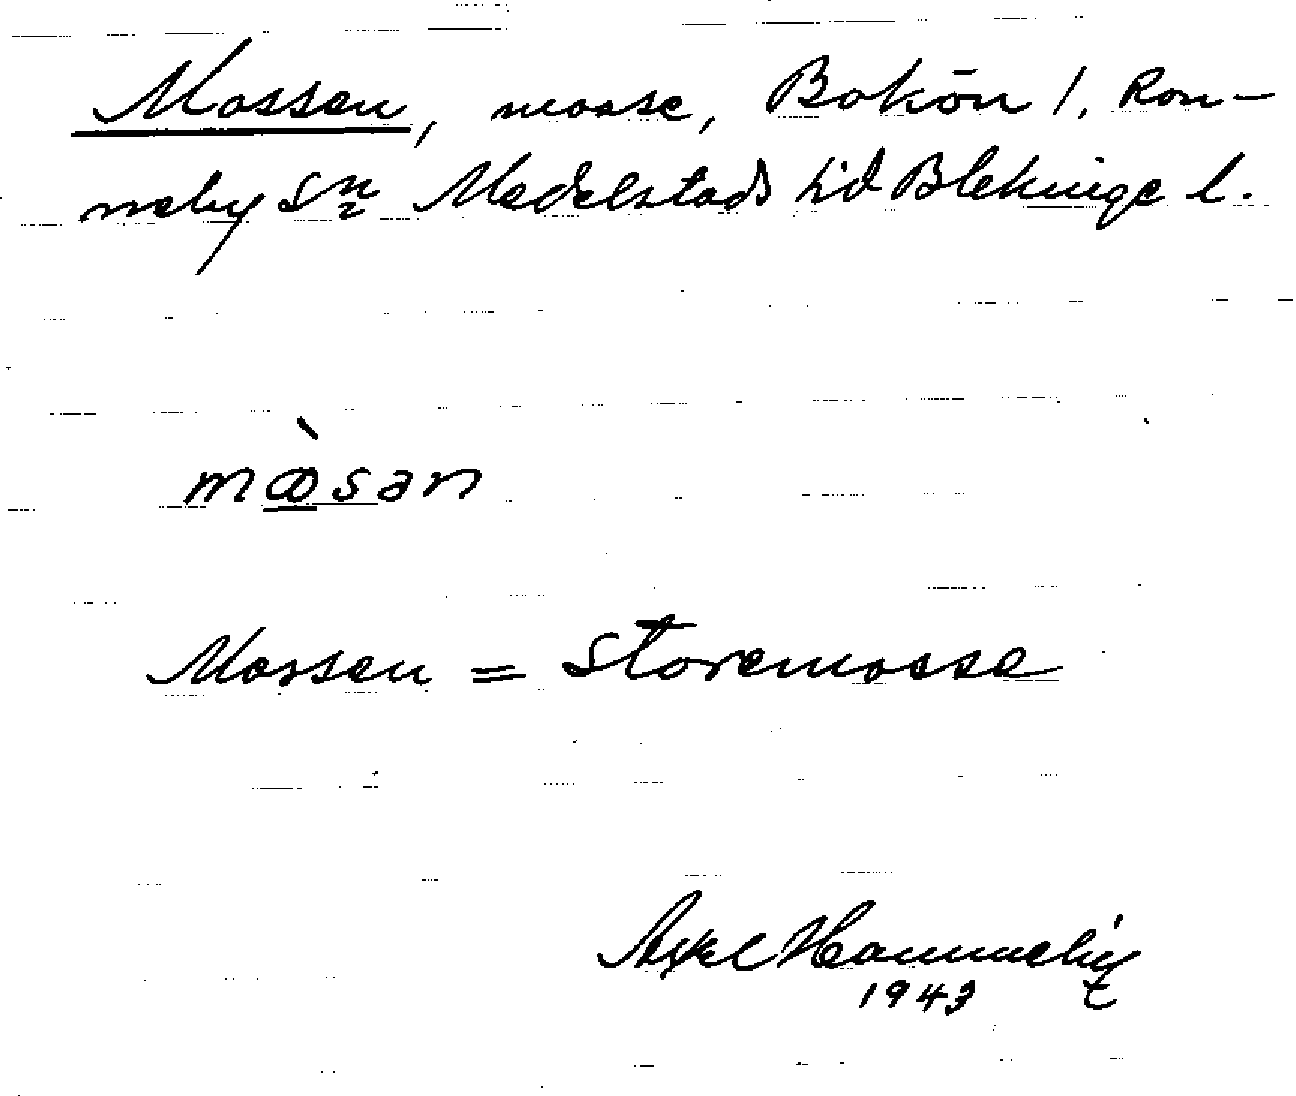 Mossen, mosse, Bokön 1, Ron-
neby Sn Medelstads hd Blekinge l.
mꝏ̀san
Mossen = Storemosse
Axel
1943